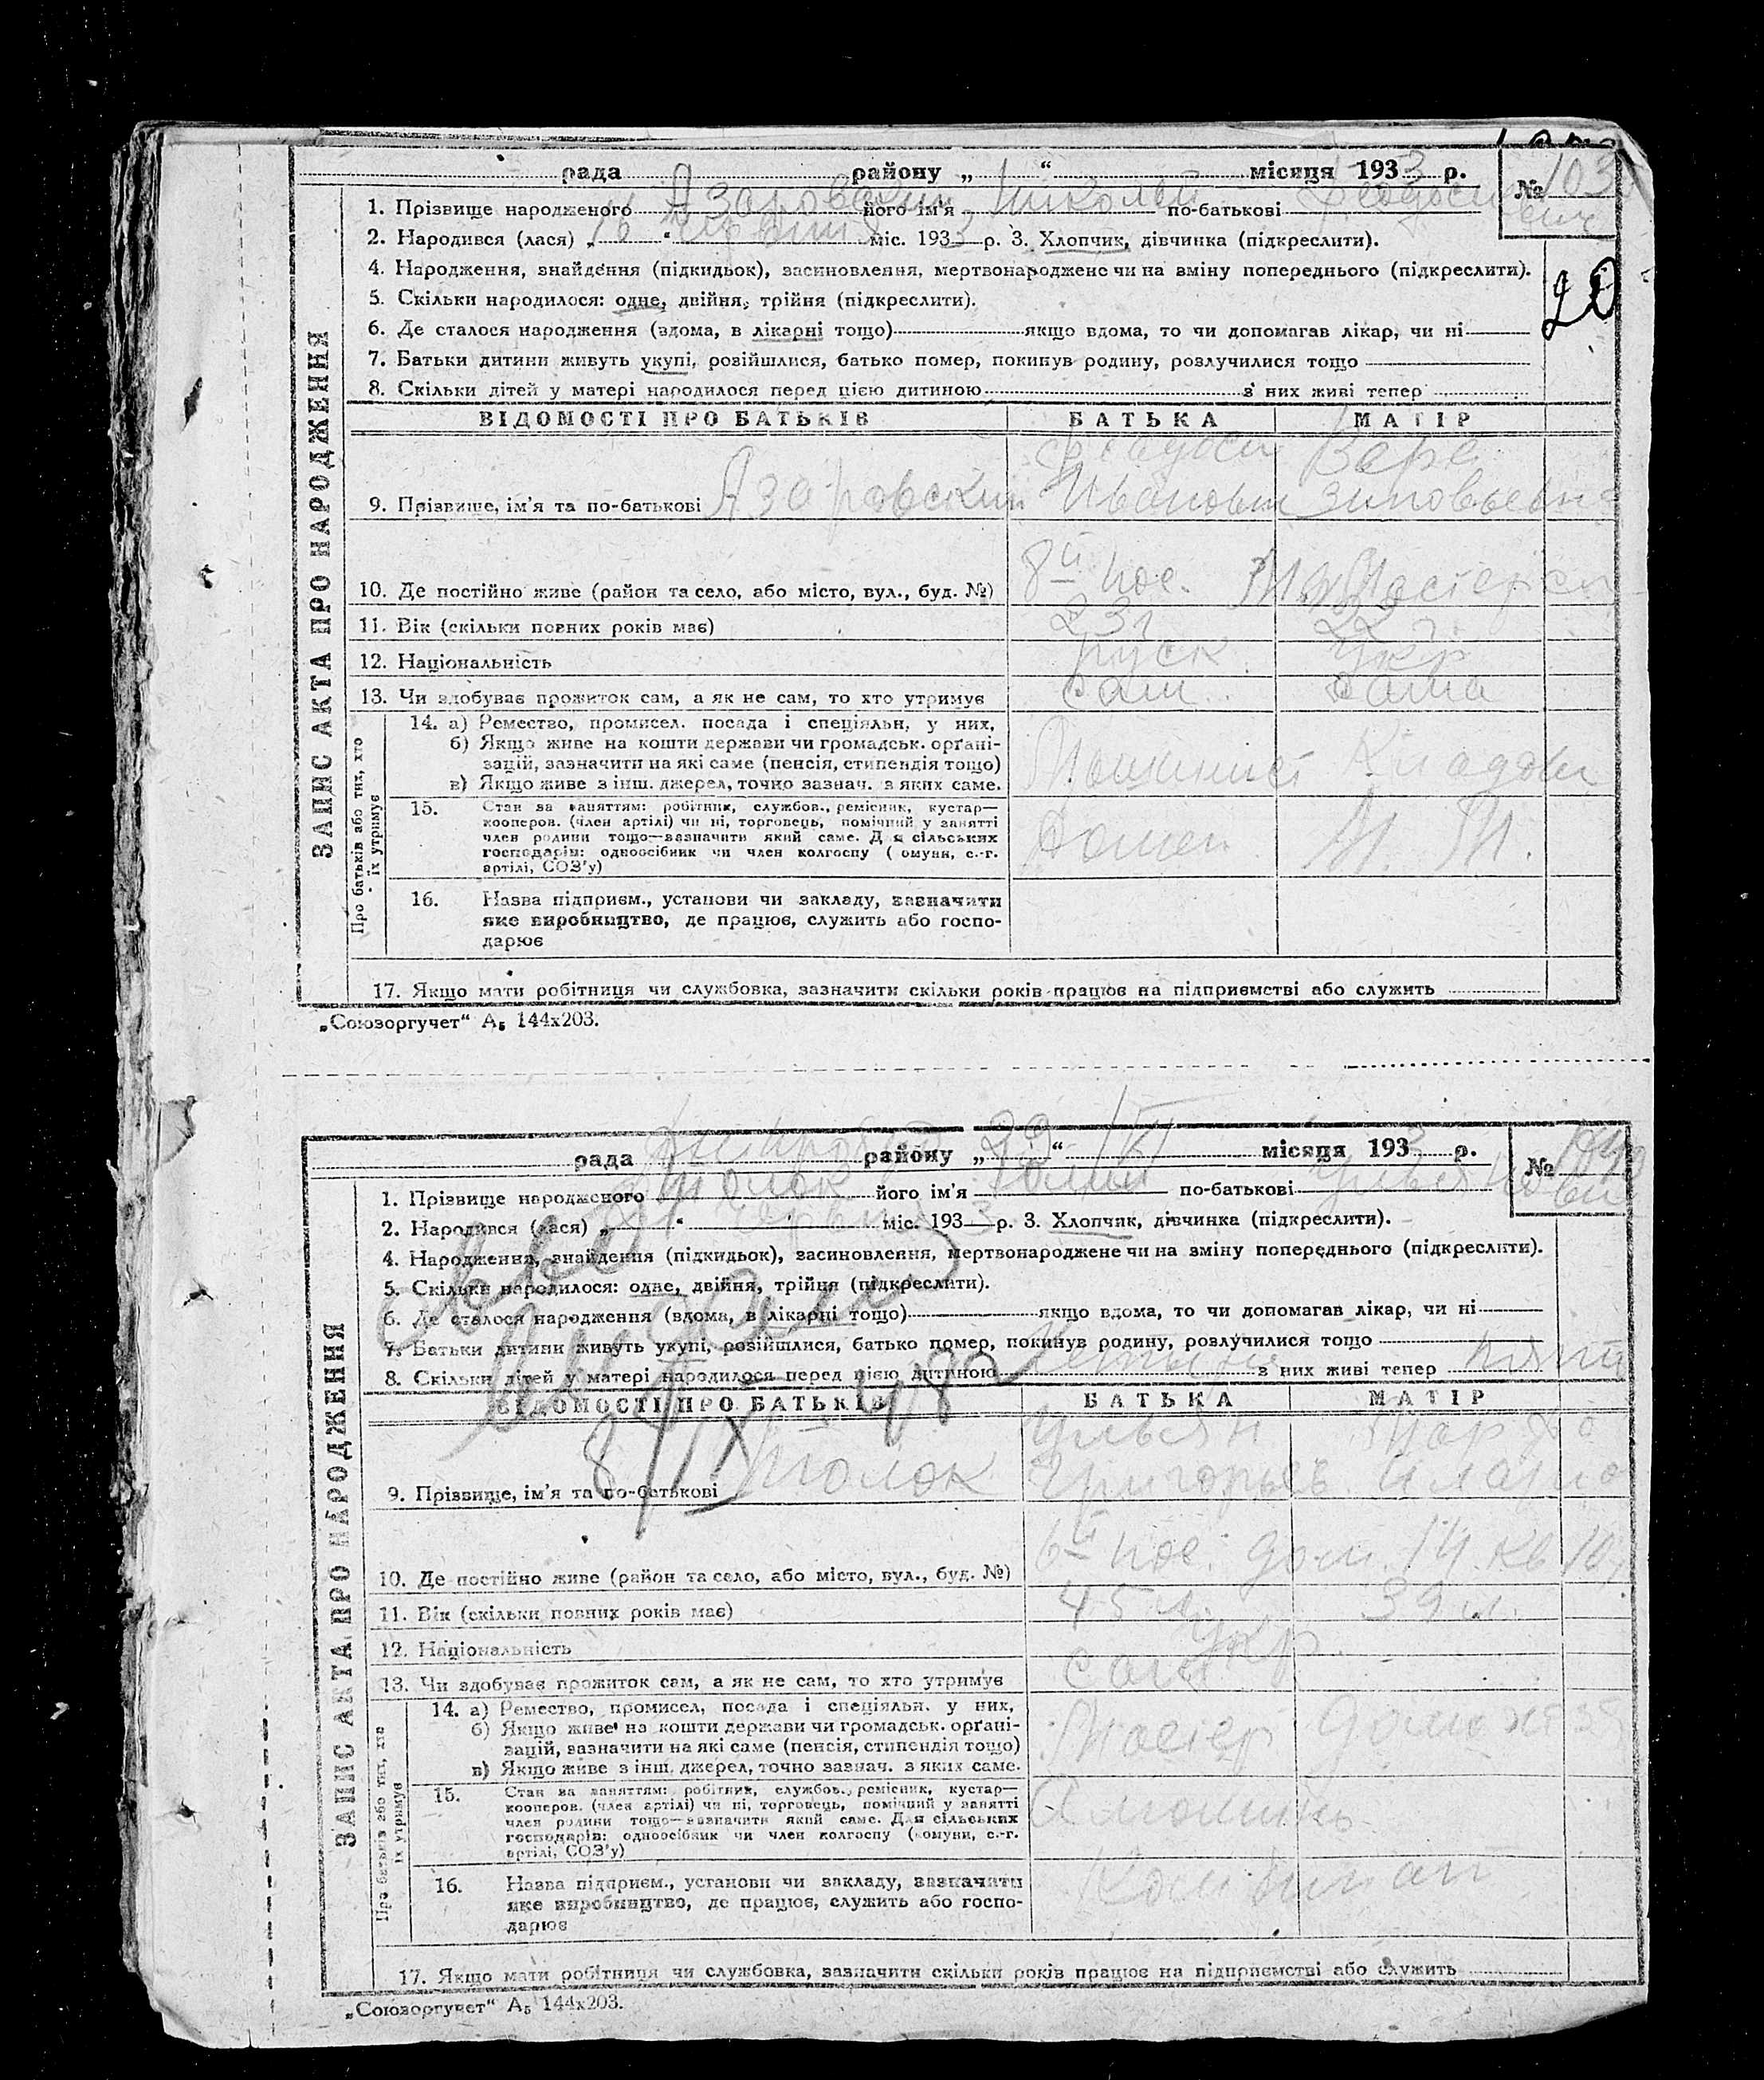 рада району „ “ місяця 1933 р. № 103
1. Прізвище народженого Азаровский його ім'я Николай по-батькові Феодосиевич
2. Народився (лася) „16“ червня міс. 1933 р. 3. Хлопчик, дівчинка (підкреслити).
20
4. Народження, знайдення (підкидьок), засиновлення, мертвонароджене чи на зміну попереднього (підкреслити).
5. Скільки народилося: одне, двійня, трійня (підкреслити).
6. Де сталося народження (вдома, в лікарні тощо) якщо вдома, то чи допомагав лікар, чи ні
7. Батьки дитини живуть укупі, розійшлися, батько помер, покинув родину, розлучилися тощо
8. Скільки дітей у матері народилося перед цією дитиною з них живі тепер
ЗАПИС АКТА ПРО НАРОДЖЕННЯ
ВІДОМОСТІ ПРО БАТЬКІВ БАТЬКА МАТІР
Феодоси Вера
9. Прізвище, ім'я та по-батькові Азаровский Иванович Зиновьевна
10. Де постійно живе (район та село, або місто, вул., буд. №) 8й пос.
11. Вік (скільки повних років має) 23л 22 л.
12. Національність руск укр
13. Чи здобуває прожиток сам, а як не сам, то хто утримує сам сама
Про батьків або тих, хто їх утримує
14. а) Ремество, промисел. посада і спеціяльн, у них,
б) Якщо живе на кошти держави чи громадськ. орґані-
зацій, зазначити на які саме (пенсія, стипендія тощо)
в) Якщо живе з інш. джерел, точно зазнач. з яких саме.
Машинист
15. Стан за заняттям: робітник, службов., ремісник, кустар—
кооперов. (член артілі) чи ні, торговець, помічний у занятті
член родини тощо—зазначити який саме. Для сільських
господарів: одноосібник чи член колгоспу (комуни, с.-г.
артілі, СОЗ'у)
Домен
16. Назва підприєм., установи чи закладу, зазначити
яке виробництво, де працює, служить або госпо-
дарює
17. Якщо мати робітниця чи службовка, зазначити скільки років працює на підприємстві або служить
„Союзоргучет“ А₅ 144х203.
рада району „29“ VI місяця 1933 р. №
1. Прізвище народженого його ім'я по-батькові
2. Народився (лася) „ “ червня міс. 1933 р. 3. Хлопчик, дівчинка (підкреслити).
4. Народження, знайдення (підкидьок), засиновлення, мертвонароджене чи на зміну попереднього (підкреслити).
5. Скільки народилося: одне, двійня, трійня (підкреслити).
6. Де сталося народження (вдома, в лікарні тощо) якщо вдома, то чи допомагав лікар, чи ні
7. Батьки дитини живуть укупі, розійшлися, батько помер, покинув родину, розлучилися тощо
8. Скільки дітей у матері народилося перед цією дитиною з них живі тепер
8/IX 48
ЗАПИС АКТА ПРО НАРОДЖЕННЯ
ВІДОМОСТІ ПРО БАТЬКІВ БАТЬКА МАТІР
Ульян Мария
9. Прізвище, ім'я та по-батькові Григорьев
10. Де постійно живе (район та село, або місто, вул., буд. №) 6й пос. дом. 14 кв 10
11. Вік (скільки повних років має) 45 л. 39 л.
12. Національність укр.
13. Чи здобуває прожиток сам, а як не сам, то хто утримує сам
Про батьків або тих, хто їх утримує
14. а) Ремество, промисел, посада і спеціяльн. у них,
б) Якщо живе на кошти держави чи громадськ. орґані-
зацій, зазначити на які саме (пенсія, стипендія тощо)
в) Якщо живе з інш. джерел, точно зазнач. з яких саме.
Мастер домохоз
15. Стан за заняттям: робітник, службов., ремісник, кустар—
кооперов. (член артілі) чи ні, торговець, помічний у занятті
член родини тощо—зазначити який саме. Для сільських
господарів: одноосібник чи член колгоспу (комуни, с.-г.
артілі, СОЗ'у)
16. Назва підприєм., установи чи закладу, зазначити
яке виробництво, де працює, служить або госпо-
дарює
Комбинат
17. Якщо мати робітниця чи службовка, зазначити скільки років працює на підприємстві або служить
„Союзоргучет“ А₅ 144х203.